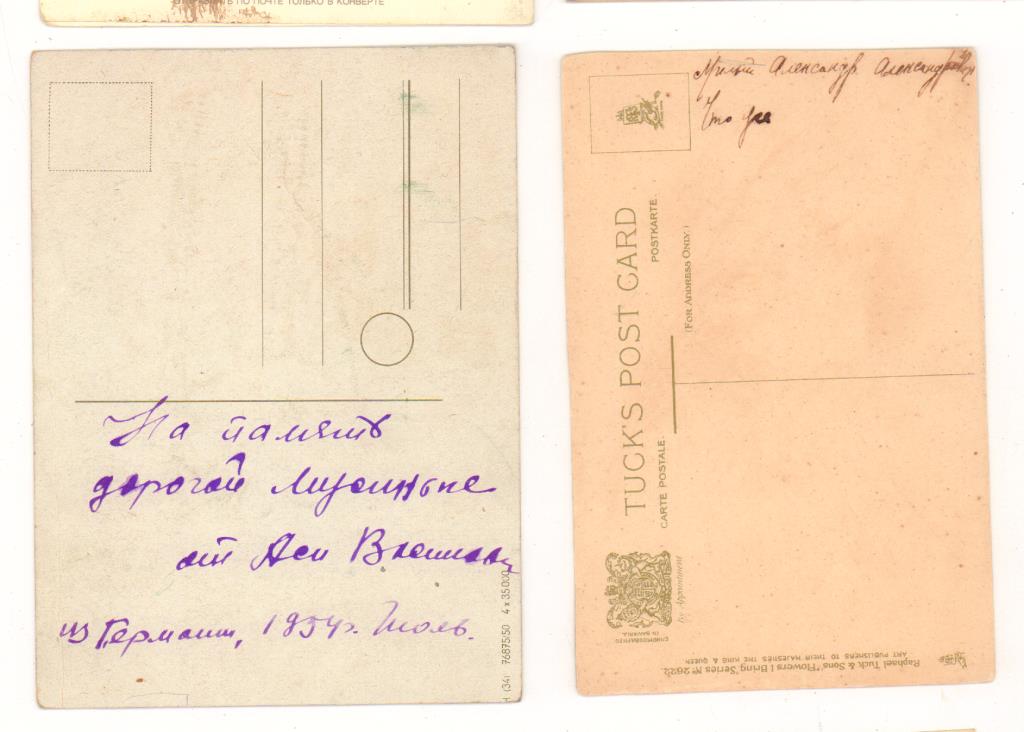 ОТПРАВЛЯТЬ ПО ПОЧТЕ ТОЛЬКО В КОНВЕРТЕ
На память
дорогой Люсиньке
от Аси
из Германии, 1954 г. Июль.
(34) 76875/50 4 x 35000
Милый Александр Александрович
Что
TUCK'S POST CARD
CARTE POSTALE.
POSTKARTE.
(FOR ADDRESS ONLY.)
By Appointment
CHROMOGRAPHED
IN BAVARIA.
Raphael Tuck & Sons' "Flowers I Bring" Series Nº 2622
ART PUBLISHERS TO THEIR MAJESTIES THE KING & QUEEN